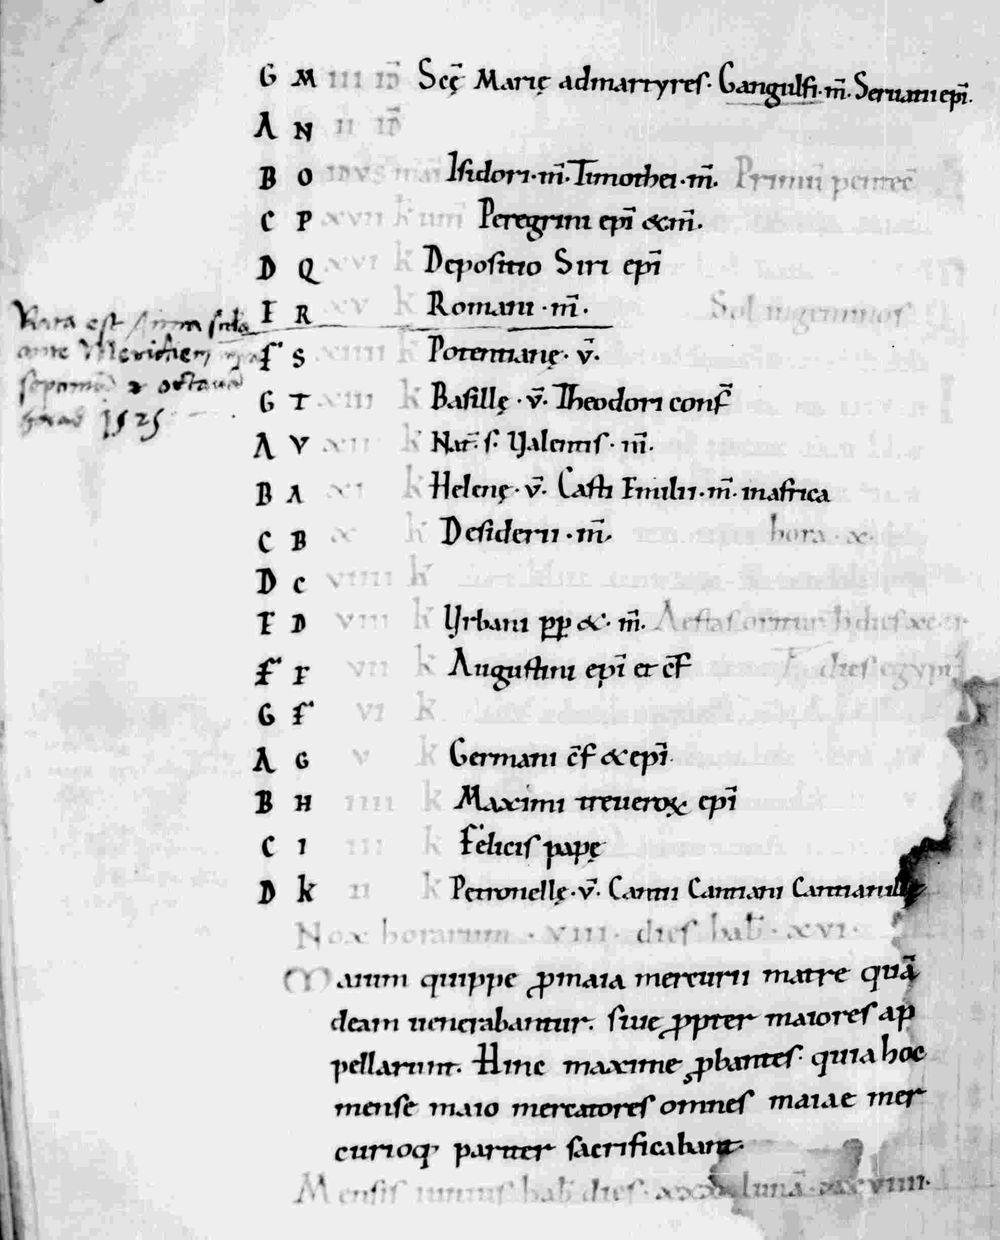 G M III ID Scę Marię admartyres. Gangulfi. m̄. Seruatii ep̄i.
A N II ID
B O IDVS mai Isidori. m̄. Timothei. m̄. Primū pentec̄
C P XVII k iuni Peregrini ep̄i & m̄.
D Q XVI k Depositio Siri ep̄i
E R XV k Romani. m̄. Sol in geminos
f S XIIII k Potentianę. v̄.
G T XIII k Basillę. v̄. Theodori conf̄
A V XII k Nat̄. s. Valentis. m̄.
B A XI k Helenę. v̄. Casti Emilii. m̄. in africa
C B X k Desiderii. m̄. hora. x.
D C VIIII k
E D VIII k Vrbani pp̄ &. m̄. Aestas oritur
f E VII k Augustini ep̄i et c̄f dies egypti
G f VI k
A G V k Germani c̄f & ep̄i.
B H IIII k Maximi treueroꝝ ep̄i
C I III k felicis papę
D k II k Petronellę. v̄. Cantii Cantiani
Nox horarum. VIII. dies hab̄. XVI.
Maium quippe ꝓ maia mercurii matre quā
deam uenerabantur. siue ꝓpter maiores ap
pellarunt. Hinc maxime ꝓbantes. quia hoc
mense maio mercatores omnes maiae mer
curioq; pariter sacrificabant.
Mensis iunius hab̄ dies. xxx. lunā. xxviiii.
est
ante Meridiem
septima & octava
1525